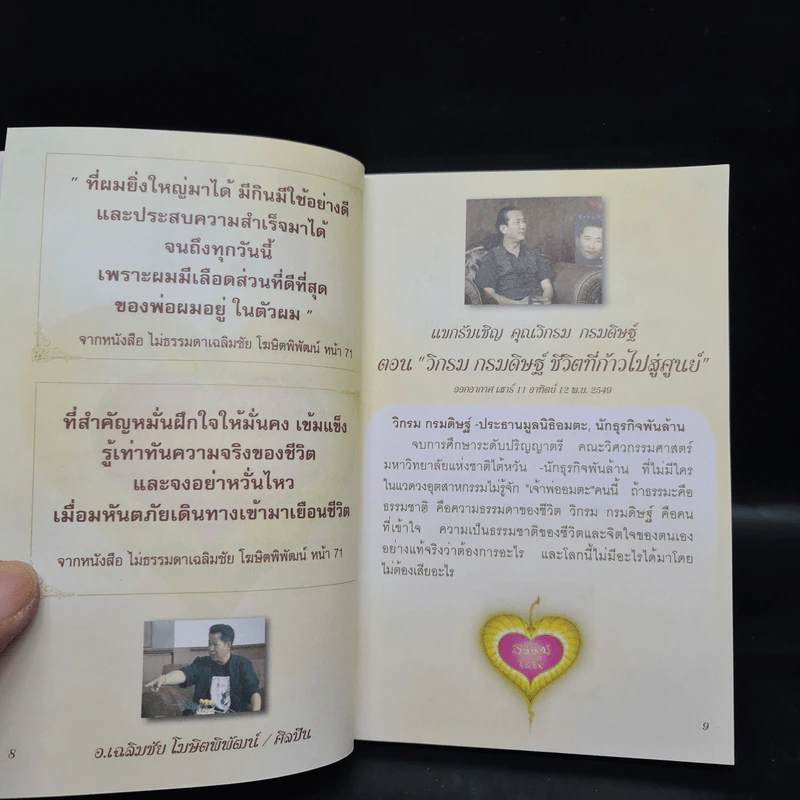 " ที่ผมยิ่งใหญ่มาได้ มีกินมีใช้อย่างดี
และประสบความสำเร็จมาได้
จนถึงทุกวันนี้
เพราะผมมีเลือดส่วนที่ดีที่สุด
ของพ่อผมอยู่ ในตัวผม "
จากหนังสือ ไม่ธรรมดาเฉลิมชัย โฆษิตพิพัฒน์ หน้า 71
ที่สำคัญหมั่นฝึกใจให้มั่นคง เข้มแข็ง
รู้เท่าทันความจริงของชีวิต
และจงอย่าหวั่นไหว
เมื่อมหันตภัยเดินทางเข้ามาเยือนชีวิต
จากหนังสือ ไม่ธรรมดาเฉลิมชัย โฆษิตพิพัฒน์ หน้า 71
อ.เฉลิมชัย โฆษิตพิพัฒน์ / ศิลปิน
8
แขกรับเชิญ คุณวิกรม กรมดิษฐ์
ตอน "วิกรม กรมดิษฐ์ ชีวิตที่ก้าวไปสู่ศูนย์"
ออกอากาศ เสาร์ 11 อาทิตย์ 12 พ.ย. 2549
วิกรม กรมดิษฐ์ -ประธานมูลนิธิอมตะ, นักธุรกิจพันล้าน
จบการศึกษาระดับปริญญาตรี คณะวิศวกรรมศาสตร์
มหาวิทยาลัยแห่งชาติไต้หวัน -นักธุรกิจพันล้าน ที่ไม่มีใคร
ในแวดวงอุตสาหกรรมไม่รู้จัก "เจ้าพ่ออมตะ"คนนี้ ถ้าธรรมะคือ
ธรรมชาติ คือความธรรมดาของชีวิต วิกรม กรมดิษฐ์ คือคน
ที่เข้าใจ ความเป็นธรรมชาติของชีวิตและจิตใจของตนเอง
อย่างแท้จริงว่าต้องการอะไร และโลกนี้ไม่มีอะไรได้มาโดย
ไม่ต้องเสียอะไร
9